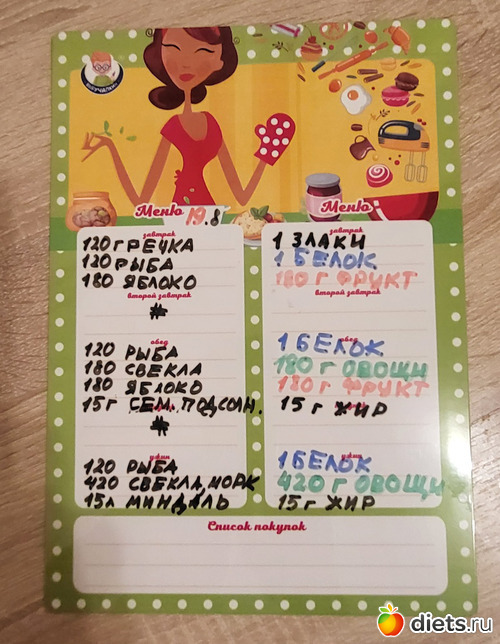 Меню 19.8
завтрак
120 ГРЕЧКА
120 РЫБА
180 ЯБЛОКО
второй завтрак
*
обед
120 РЫБА
180 СВЕКЛА
180 ЯБЛОКО
15г СЕМ. ПОДСОЛН.
*
ужин
120 РЫБА
420 СВЕКЛА, МОРК
15л МИНДАЛЬ
Меню
завтрак
1 ЗЛАКИ
1 БЕЛОК
180 г ФРУКТ
второй завтрак
обед
1 БЕЛОК
180 г ОВОЩИ
180 г ФРУКТ
15 г ЖИР
ужин
1 БЕЛОК
420 г ОВОЩИ
15 г ЖИР
Список покупок
diets.ru